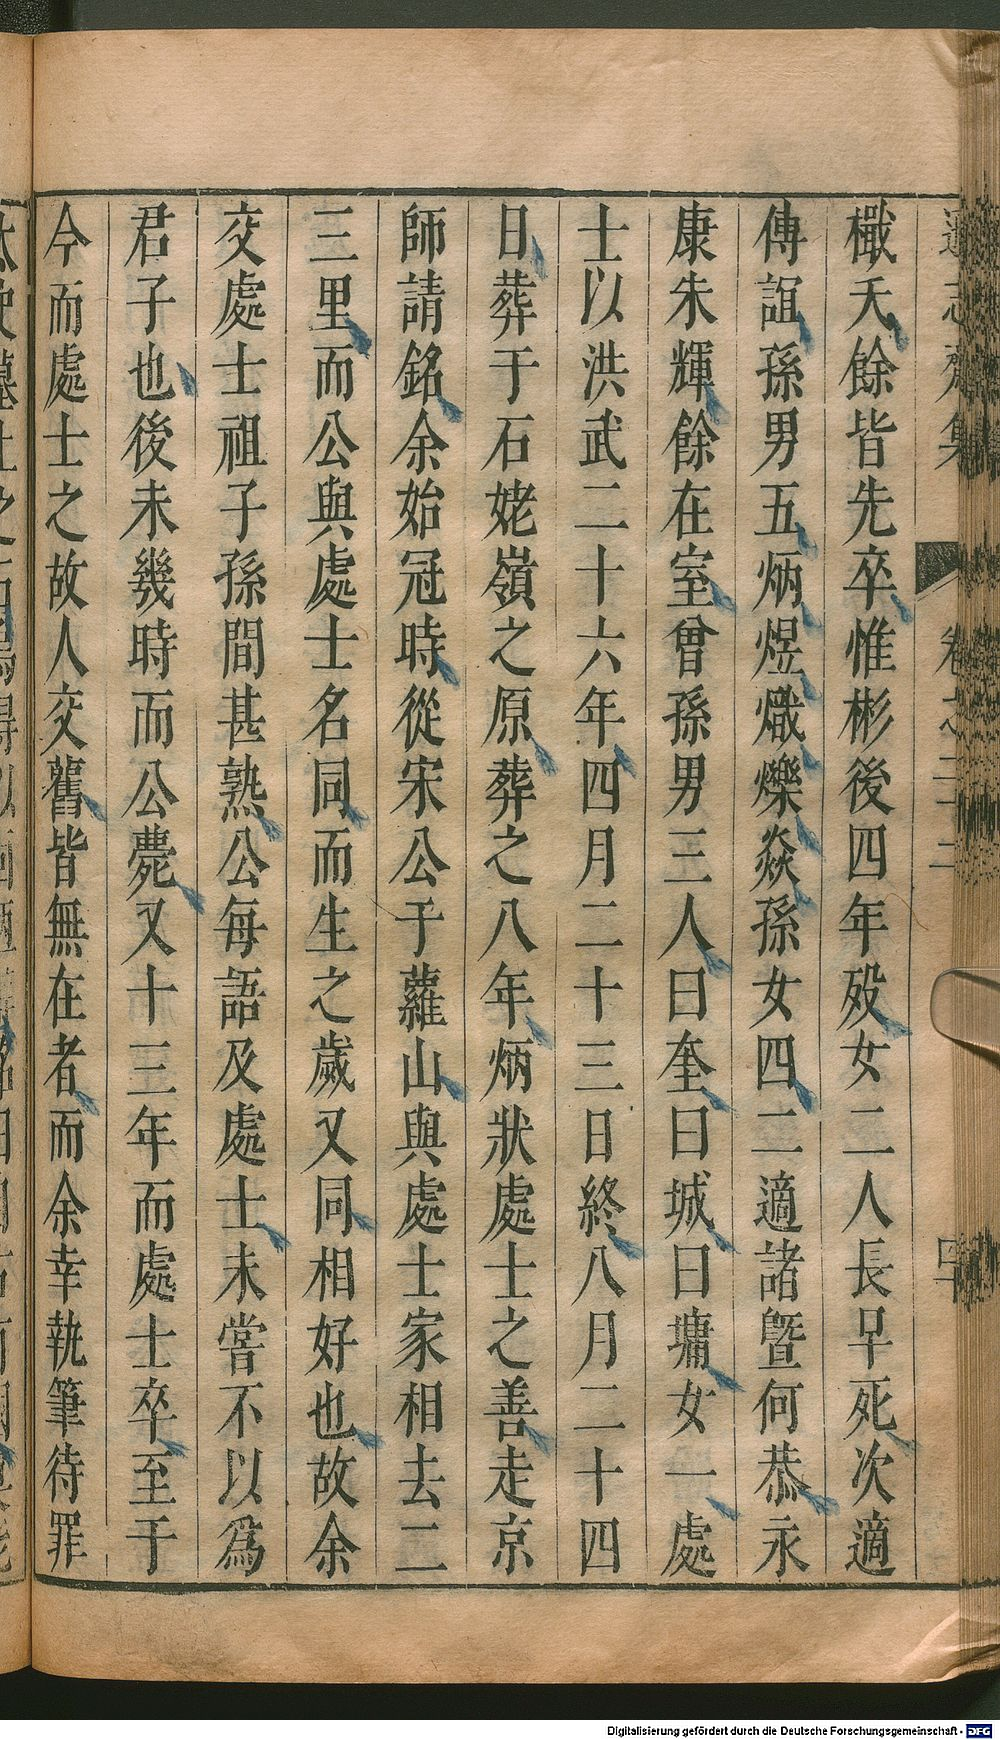 遜志齋集 卷之二十二 四十
檝夭餘皆先卒惟彬後四年歿女二人長早死次適
傳誼孫男五炳煜熾爍焱孫女四二適諸暨何恭永
康朱輝餘在室曾孫男三人曰奎曰城曰墉女一處
士以洪武二十六年四月二十三日終八月二十四
日葬于石姥嶺之原葬之八年炳狀處士之善走京
師請銘余始冠時從宋公于蘿山與處士家相去二
三里而公與處士名同而生之歲又同相好也故余
交處士祖子孫間甚熟公每語及處士未嘗不以為
君子也後未幾時而公薨又十三年而處士卒至于
今而處士之故人交舊皆無在者而余幸執筆待罪
Digitalisierung gefördert durch die Deutsche Forschungsgemeinschaft - DFG